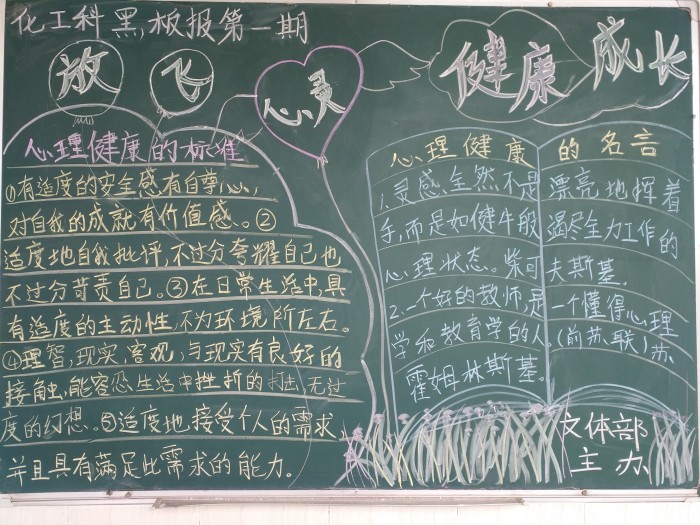 化工科黑板报第一期
放飞心灵
健康成长
心理健康的标准
①有适度的安全感,有自尊心,
对自我的成就有价值感。②
适度地自我批评,不过分夸耀自己也
不过分苛责自己。③在日常生活中,具
有适度的主动性,不为环境所左右。
④理智,现实,客观,与现实有良好的
接触,能容忍生活中挫折的打击,无过
度的幻想。⑤适度地接受个人的需求,
并且具有满足此需求的能力。
心理健康的名言
1.灵感,全然不是漂亮地挥着
手,而是如健牛般竭尽全力工作的
心理状态。柴可夫斯基.
2.一个好的教师,是一个懂得心理
学和教育学的人。(前苏、联)苏
霍姆林斯基。
文体部
主办